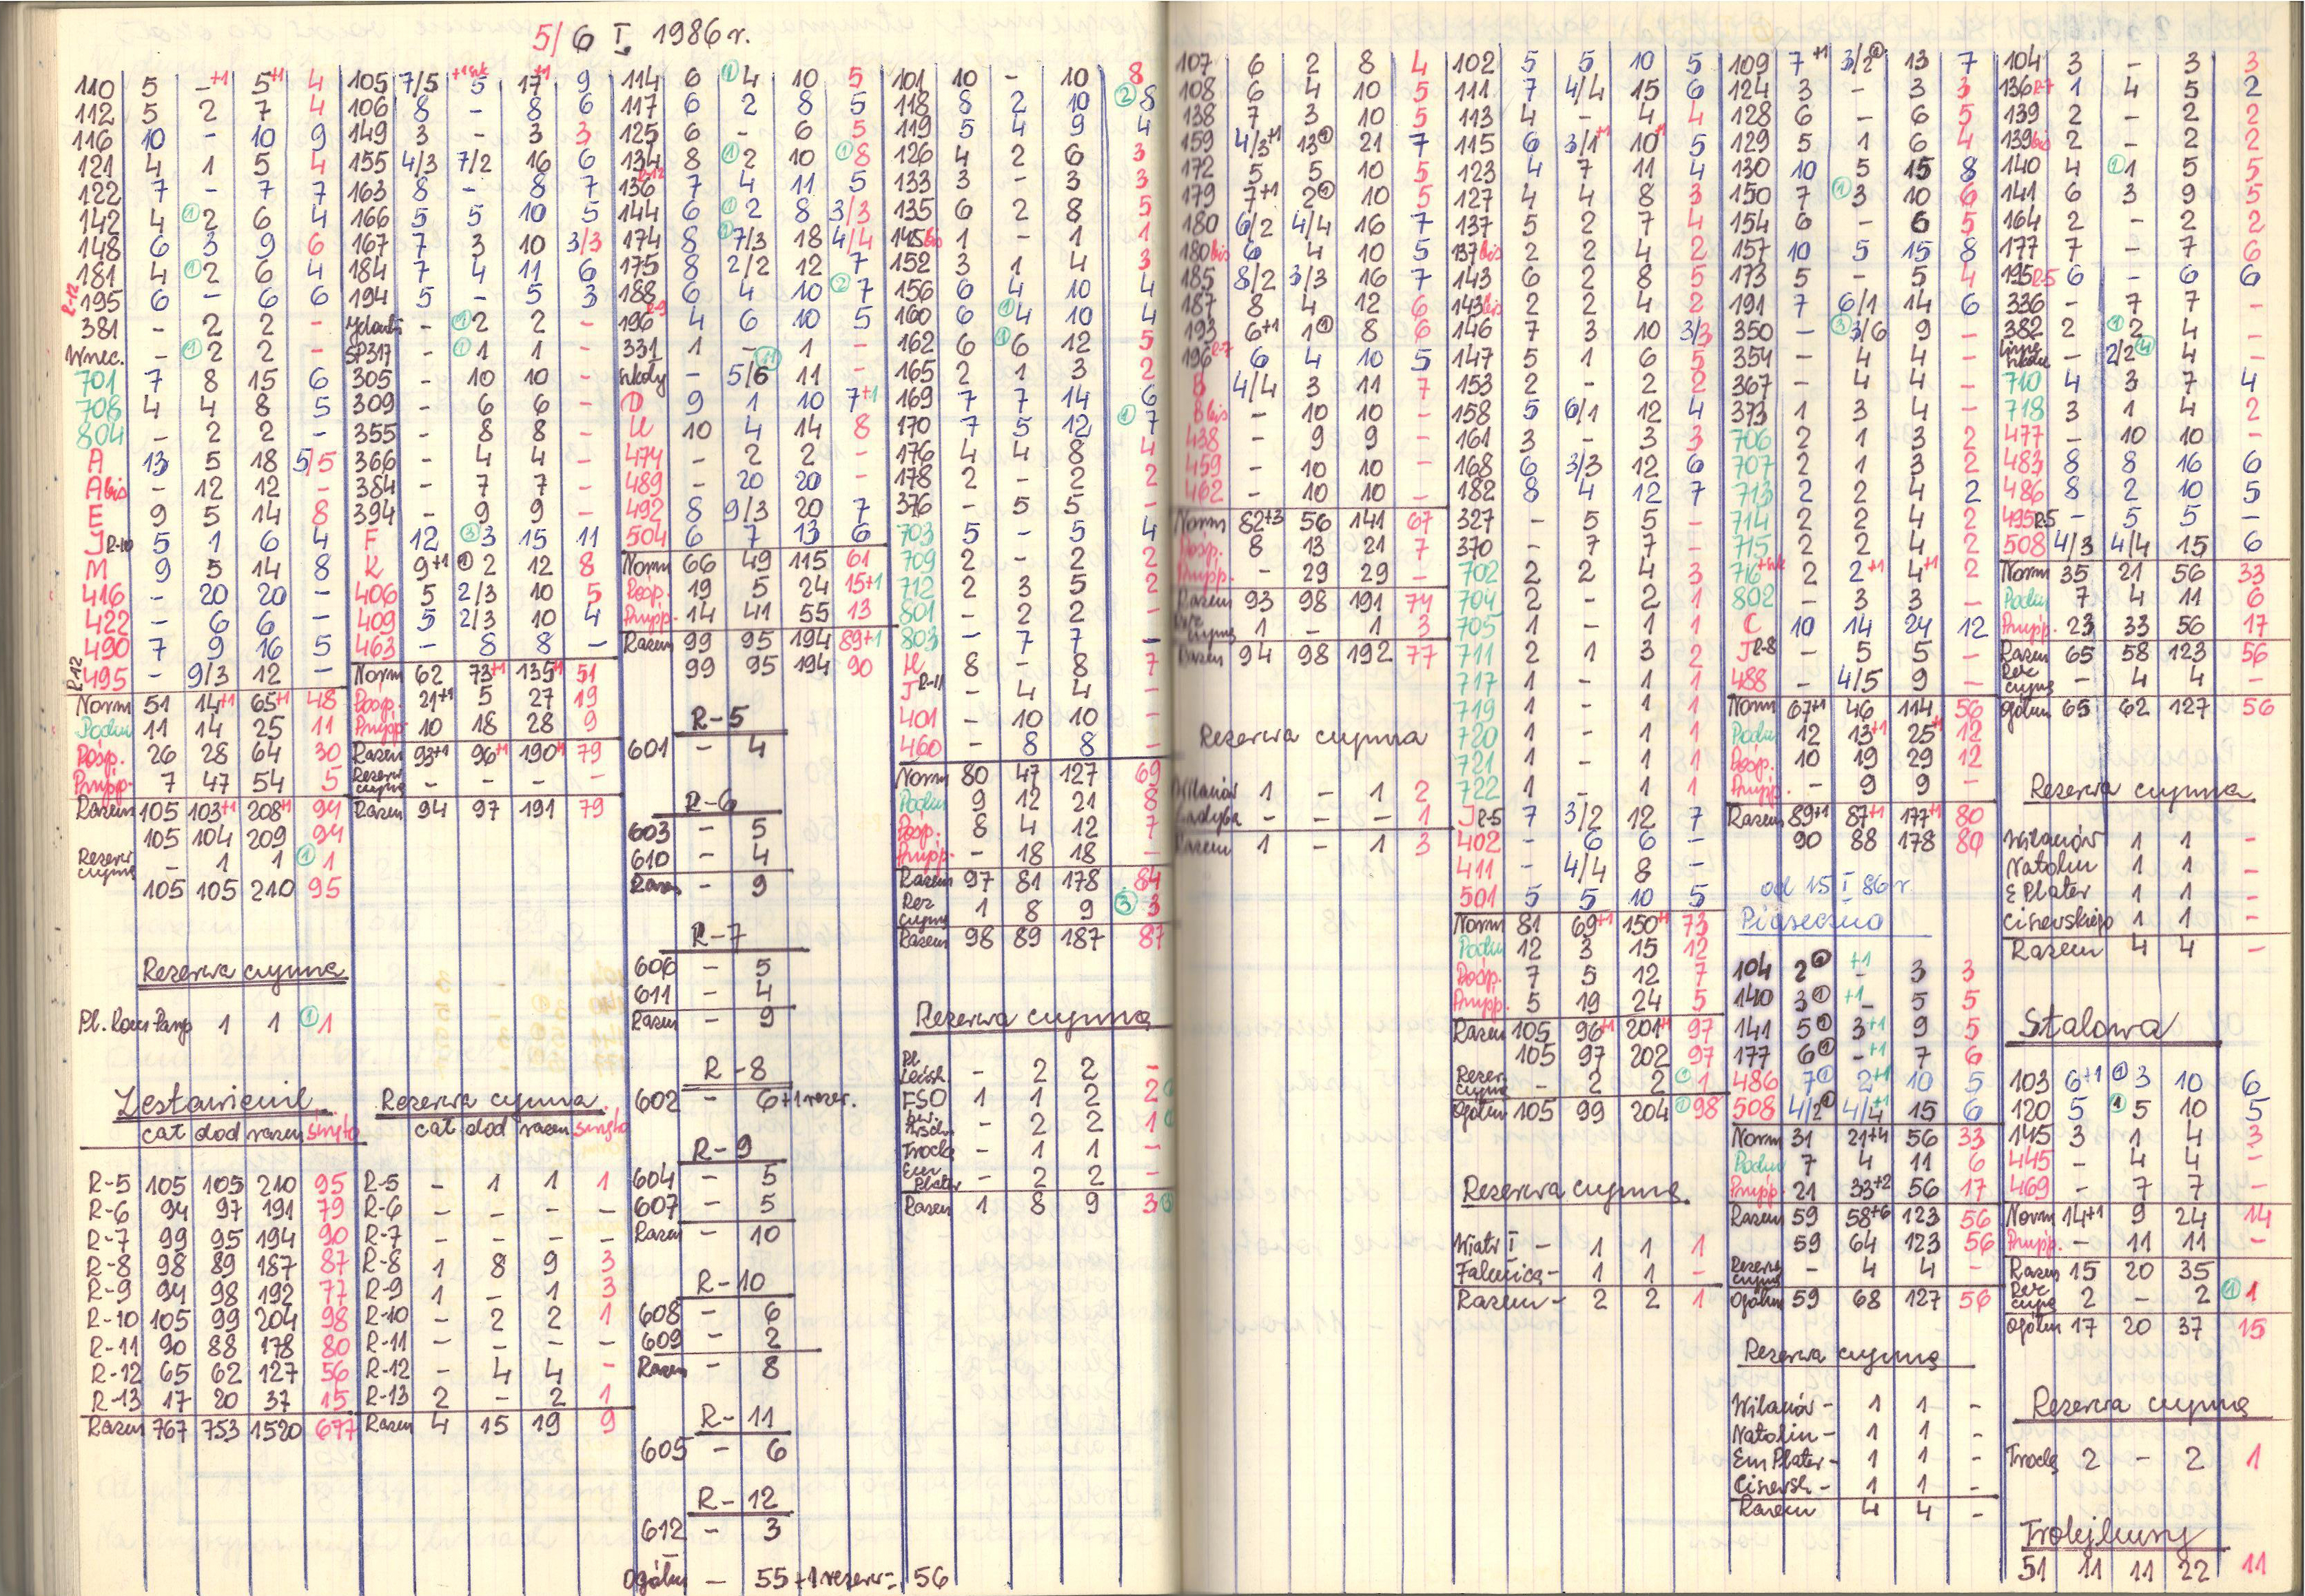 5/6 I 1986 r.
110 5 -+1 5+1 4
112 5 2 7 4
116 10 - 10 9
121 4 1 5 4
122 7 - 7 7
142 4 ①2 6 4
148 6 3 9 6
181 4 ①2 6 4
R-12 195 6 - 6 6
381 - 2 2 -
Wnec. - ①2 2 -
701 7 8 15 6
708 4 4 8 5
804 - 2 2 -
A 13 5 18 5/5
A bis - 12 12 -
E 9 5 14 8
J R-10 5 1 6 4
M 9 5 14 8
416 - 20 20 -
422 - 6 6 -
490 7 9 16 5
R-12 495 - 9/3 12 -
Norm 51 14+1 65+1 48
Podm 11 14 25 11
Posp. 26 28 64 30
Przysp. 7 47 54 5
Razem 105 103+1 208+1 94
105 104 209 94
Rezerw czynna - 1 1 ①1
105 105 210 95
Rezerwa czynna
Pl. Kom Paryp 1 1 ①1
Zestawienie
cat dod razem singla
R-5 105 105 210 95
R-6 94 97 191 79
R-7 99 95 194 90
R-8 98 89 187 87
R-9 94 98 192 77
R-10 105 99 204 98
R-11 90 88 178 80
R-12 65 62 127 56
R-13 17 20 37 15
Razem 767 753 1520 677
105 7/5 +1szk 5 17+1 9
106 8 - 8 6
149 3 - 3 3
155 4/3 7/2 16 6
163 8 - 8 7
166 5 5 10 5
167 7 3 10 3/3
184 7 4 11 6
194 5 - 5 3
- ①2 2 -
SP317 - ①1 1 -
305 - 10 10 -
309 - 6 6 -
355 - 8 8 -
366 - 4 4 -
384 - 7 7 -
394 - 9 9 -
F 12 ③3 15 11
K 9+1 ①2 12 8
406 5 2/3 10 5
409 5 2/3 10 4
463 - 8 8 -
Norm 62 73+1 135+1 51
Posp. 21+1 5 27 19
Przysp 10 18 28 9
Razem 93+1 96+1 190+1 79
Rezerw czynna - - - -
Razem 94 97 191 79
Rezerwa czynna
cat dod razem singla
R-5 - 1 1 1
R-6 - - - -
R-7 - - - -
R-8 1 8 9 3
R-9 1 - 1 3
R-10 - 2 2 1
R-11 - - - -
R-12 - 4 4 -
R-13 2 - 2 1
Razem 4 15 19 9
114 6 ①4 10 5
117 6 2 8 5
125 6 - 6 5
134 8 ①2 10 ①8
R-12 136 7 4 11 5
144 6 ①2 8 3/3
174 8 ①7/3 18 4/4
175 8 2/2 12 7
188 6 4 10 ②7
R-9 196 4 6 10 5
331 1 - 1 -
szkoły - 5/6 11 -
D 9 1 10 7+1
U 10 4 14 8
474 - 2 2 -
489 - 20 20 -
492 8 9/3 20 7
504 6 7 13 6
Norm 66 49 115 61
Posp. 19 5 24 15+1
Przysp. 14 41 55 13
Razem 99 95 194 89+1
99 95 194 90
R-5
601 - 4
R-6
603 - 5
610 - 4
Razem - 9
R-7
606 - 5
611 - 4
Razem - 9
R-8
602 - 6+1 rezer.
R-9
604 - 5
607 - 5
Razem - 10
R-10
608 - 6
609 - 2
Razem - 8
R-11
605 - 6
R-12
612 - 3
Ogółem - 55+1 rezerw = 56
101 10 - 10 8
118 8 2 10 ②8
119 5 4 9 4
126 4 2 6 3
133 3 - 3 3
135 6 2 8 5
145 bis 1 - 1 1
152 3 1 4 3
156 6 4 10 4
160 6 ①4 10 4
162 6 ①6 12 5
165 2 1 3 2
169 7 7 14 6
170 7 5 12 ①7
176 4 4 8 4
178 2 - 2 2
376 - 5 5 -
703 5 - 5 4
709 2 - 2 2
712 2 3 5 2
801 - 2 2 -
803 - 7 7 -
H 8 - 8 7
J R-11 - 4 4 -
401 - 10 10 -
460 - 8 8 -
Norm 80 47 127 69
Podm 9 12 21 8
Posp. 8 4 12 7
Przysp. - 18 18 -
Razem 97 81 178 84
Rez czynna 1 8 9 ③3
Razem 98 89 187 87
Rezerwa czynna
Pl. - 2 2 -
FSO 1 1 2 2
- 2 2 1
Trocka - 1 1 -
Em Plater - 2 2 -
Razem 1 8 9 3
107 6 2 8 4
108 6 4 10 5
138 7 3 10 5
159 4/3+1 13① 21 7
172 5 5 10 5
179 7+1 2① 10 5
180 6/2 4/4 16 7
180 bis 6 4 10 5
185 8/2 3/3 16 7
187 8 4 12 6
193 6+1 1① 8 6
196 R-7 6 4 10 5
B 4/4 3 11 7
B bis - 10 10 -
438 - 9 9 -
459 - 10 10 -
462 - 10 10 -
Norm 82+3 56 141 67
Posp. 8 13 21 7
Przysp. - 29 29 -
Razem 93 98 191 74
Rez czynna 1 - 1 3
Razem 94 98 192 77
Rezerwa czynna
Wilanów 1 - 1 2
Sadyba - - - 1
Razem 1 - 1 3
102 5 5 10 5
111 7 4/4 15 6
113 4 - 4 4
115 6 3/1+1 10+1 5
123 4 7 11 4
127 4 4 8 3
137 5 2 7 4
137 bis 2 2 4 2
143 6 2 8 5
143 bis 2 2 4 2
146 7 3 10 3/3
147 5 1 6 5
153 2 - 2 2
158 5 6/1 12 4
161 3 - 3 3
168 6 3/3 12 6
182 8 4 12 7
327 - 5 5 -
370 - 7 7 -
702 2 2 4 3
704 2 - 2 1
705 1 - 1 1
711 2 1 3 2
717 1 - 1 1
719 1 - 1 1
720 1 - 1 1
721 1 - 1 1
722 1 - 1 1
J R-5 7 3/2 12 7
402 - 6 6 -
411 - 4/4 8 -
501 5 5 10 5
Norm 81 69+1 150+1 73
Podm 12 3 15 12
Posp. 7 5 12 7
Przysp. 5 19 24 5
Razem 105 96+1 201+1 97
105 97 202 97
Rezer czynna - 2 2 ①1
Ogółem 105 99 204 ①98
Rezerwa czynna
Wiatr I - 1 1 1
Falenica - 1 1 -
Razem - 2 2 1
109 7+1 3/2① 13 7
124 3 - 3 3
128 6 - 6 5
129 5 1 6 4
130 10 5 15 8
150 7 ①3 10 6
154 6 - 6 5
157 10 5 15 8
173 5 - 5 4
191 7 6/1 14 6
350 - ③3/6 9 -
354 - 4 4 -
367 - 4 4 -
373 1 3 4 -
706 2 1 3 2
707 2 1 3 2
713 2 2 4 2
714 2 2 4 2
715 2 2 4 2
716+szk 2 2+1 4+1 2
802 - 3 3 -
C 10 14 24 12
J R-8 - 5 5 -
488 - 4/5 9 -
Norm 67+1 46 114 56
Podm 12 13+1 25+1 12
Posp. 10 19 29 12
Przysp. - 9 9 -
Razem 89+1 87+1 177+1 80
90 88 178 80
od 15 I 86 r
Piaseczno
104 2① -+1 3 3
140 3① +1 - 5 5
141 5① 3+1 9 5
177 6① -+1 7 6
486 7① 2+1 10 5
508 4/2① 4/4+1 15 6
Norm 31 21+4 56 33
Podm 7 4 11 6
Przysp. 21 33+2 56 17
Razem 59 58+6 123 56
59 64 123 56
Rezerw czynna - 4 4 -
Ogółem 59 68 127 56
Rezerwa czynna
Wilanów - 1 1 -
Natolin - 1 1 -
Em Plater - 1 1 -
Ciszewsk - 1 1 -
Razem 4 4 -
104 3 - 3 3
136 R-7 1 4 5 2
139 2 - 2 2
139 bis 2 - 2 2
140 4 ①1 5 5
141 6 3 9 5
164 2 - 2 2
177 7 - 7 6
195 R-5 6 - 6 6
336 - 7 7 -
382 2 ①2 4 -
- 2/2④ 4 -
710 4 3 7 4
718 3 1 4 2
477 - 10 10 -
483 8 8 16 6
486 8 2 10 5
495 R-5 - 5 5 -
508 4/3 4/4 15 6
Norm 35 21 56 33
Podm 7 4 11 6
Przysp. 23 33 56 17
Razem 65 58 123 56
Rez czynna - 4 4 -
Ogółem 65 62 127 56
Rezerwa czynna
Wilanów 1 1 -
Natolin 1 1 -
E Plater 1 1 -
Ciszewskiego 1 1 -
Razem 4 4 -
Stalowa
103 6+1 ①3 10 6
120 5 ①5 10 5
145 3 1 4 3
445 - 4 4 -
469 - 7 7 -
Norm 14+1 9 24 14
Przysp. - 11 11 -
Razem 15 20 35
Rez czynna 2 - 2 ①1
Ogółem 17 20 37 15
Rezerwa czynna
Trocka 2 - 2 1
Trolejbusy
51 11 11 22 11